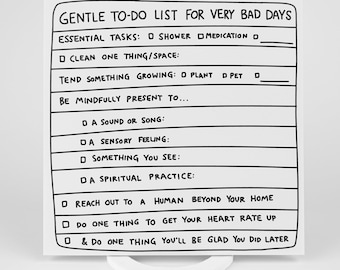 GENTLE TO-DO LIST FOR VERY BAD DAYS
ESSENTIAL TASKS: SHOWER MEDICATION
CLEAN ONE THING/SPACE:
TEND SOMETHING GROWING: PLANT PET
BE MINDFULLY PRESENT TO...
A SOUND OR SONG:
A SENSORY FEELING:
SOMETHING YOU SEE:
A SPIRITUAL PRACTICE:
REACH OUT TO A HUMAN BEYOND YOUR HOME
DO ONE THING TO GET YOUR HEART RATE UP
& DO ONE THING YOU'LL BE GLAD YOU DID LATER